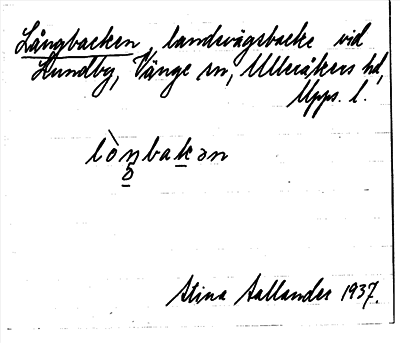 Långbacken, landsvägsbacke vid
Hundby, Vänge sn, Ulleråkers hd,
Upps. l.
lòŋbakən
Stina Aallander 1937.